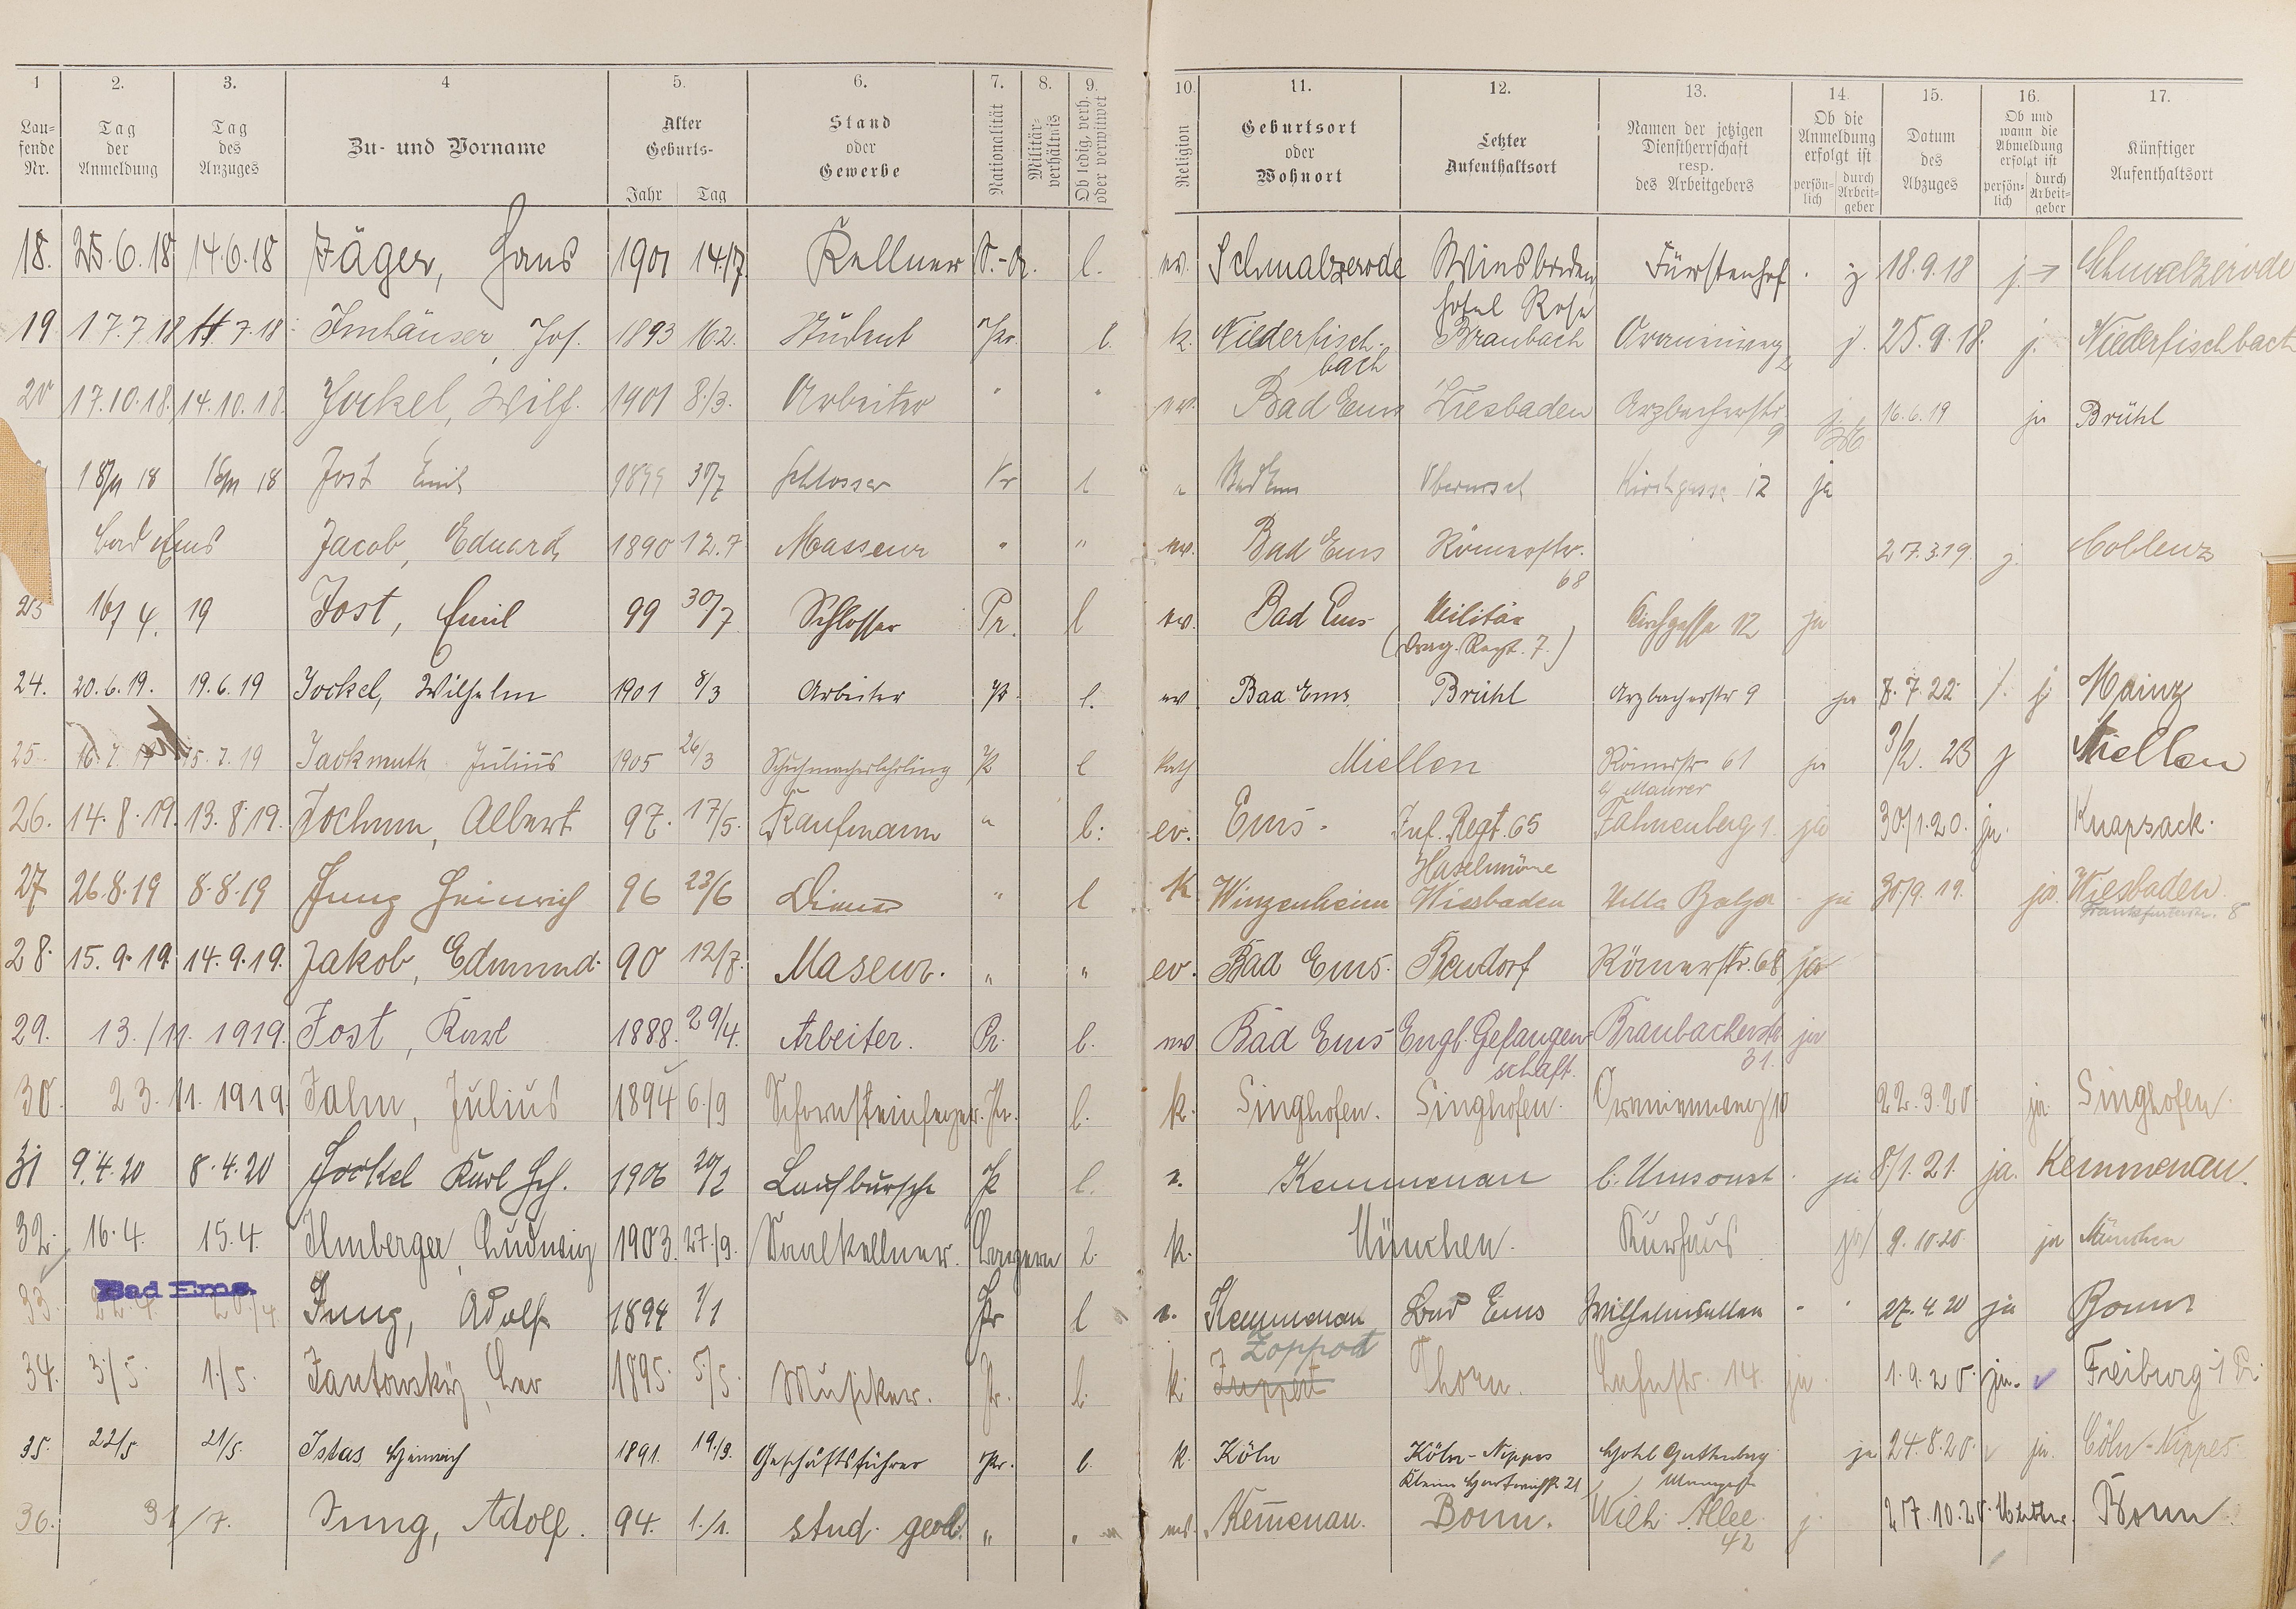 1 2. 3. 4 5. 6. 7. 8. 9. 10. 11. 12. 13. 14. 15. 16. 17.
Lau-
fende
Nr.
Tag
der
Anmeldung
Tag
des
Anzuges
Zu- und Vorname
Alter
Geburts-
Jahr Tag
Stand
oder
Gewerbe
Nationalität
Militär-
verhältnis
Ob ledig, verh.
oder verwitwet
Religion
Geburtsort
oder
Wohnort
Letzter
Aufenthaltsort
Namen der jetzigen
Dienstherrschaft
resp.
des Arbeitgebers
Ob die
Anmeldung
erfolgt ist
persön-
lich
durch
Arbeit-
geber
Datum
des
Abzuges
Ob und
wann die
Abmeldung
erfolgt ist
persön-
lich
durch
Arbeit-
geber
Künftiger
Aufenthaltsort
18. 25.6.18. 14.6.18 Jäger, Hans 1901 14./7 Kellner l. ev. Schmalzerode Wiesbaden Fürstenhof 18.9.18 j. Schmalzerode
Hotel Rose
19 17.7.18 7.18 Imhäuser, Jos. 1893 16.2. Student Pr. l. k. Niederfisch- Braubach j. 25.9.18. j. Niederfischbach
bach
20 17.10.18. 14.10.18. Jockel, Wilh. 1901 8./3. Arbeiter " " ev. Bad Ems Wiesbaden Arzbacherstr. 16.6.19 ja Brühl
9
18/11 18 16/11 18 Jost Emil 1899 30/7 Schlosser Pr l " Bad Ems Oberursel Kirchgasse 12 ja
Bad Ems Jacob, Eduard 1890 12.7 Masseur " " ev. Bad Ems Römerstr. 27.3.19. j. Coblenz
68
23 16/4. 19 Jost, Emil 99 30/7 Schlosser Pr. l ev. Bad Ems Militär Kirchgasse 12 ja
(Drag. Regt. 7.)
24. 20.6.19. 19.6.19 Jockel, Wilhelm 1901 8/3 Arbeiter Pr. l. ev Bad Ems Brühl Arzbacherstr 9 ja 8.7.22 j Mainz
25. 16.7.19 15.7.19 Jackmuth Julius 1905 26/3 Schuhmacherlehrling Pr l kath Miellen Römerstr 61 ja 9/2. 23 j Miellen
b/ Maurer
26. 14.8.19. 13.8.19. Jochum, Albert 97. 17/5. Kaufmann " l. ev. Ems. Inf. Regt. 65 Fahnenberg 1. ja 30./1.20. ja. Knapsack.
27 26.8.19 8.8.19 Jung Heinrich 96 23/6 Diener " l k. Winzenheim Wiesbaden Villa Balzer ja 30/9.19. ja. Wiesbaden
Frankfurterstr. 8
28. 15.9.19. 14.9.19. Jakob, Edmund. 90 12/7. Maseur. " " ev. Bad Ems. Bendorf Römerstr. 68 ja
29. 13./11. 1919. Jost, Karl 1888. 29/4. Arbeiter. Pr. l. ev Bad Ems Engl. Gefangen- Braubacherstr. ja
schaft. 31.
30. 23. 11. 1919. Jalm, Julius 1894 6./9 Schornsteinfeger. Pr. l. k. Singhofen. Singhofen. Oranienweg 10 22.3.20 ja. Singhofen.
31 9.4.20 8.4.20 Jockel Karl Hch. 1906 20/2 Laufbursche Pr l. e. Kemmenau b. Umsonst ja 8./1.21. ja. Kemmenau.
32. 16.4. 15.4. Ilmberger, Ludwig 1903. 27./9. Saalkellner. Bayern l. k. München. Kurhaus ja 9.10.20 ja München
Bad Ems.
33. Jung, Adolf 1894 1/1 Pr l e. Kemmenau Bad Ems Wilhelmsallee " " 27.4.20 ja Bonn
Zoppot
34. 3./5. 1./5. Jantowsky, Leo 1895. 5./5. Musiker. Pr. l. k. Thorn. 14. ja. 1.9.20. ja. Freiburg
35. 22/5. 21/5. Istas Heinrich 1891. 19./3. Geschäftsführer Pr. l. k. Köln Köln-Nippes Hotel Guttenberg ja 24.8.20. ja. Cöln-Nippes
36. 31/7. Jung, Adolf. 94. 1./1. stud. geol. " " ev. Kem̄enau. Bonn. Wilh. Allee. j. 27.10.20. Bonn.
42